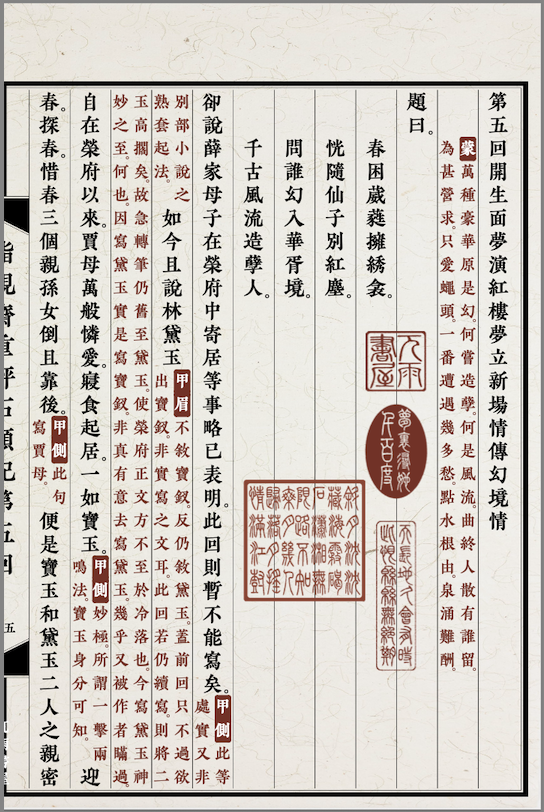 第五回開生面夢演紅樓夢立新場情傳幻境情
蒙 萬種豪華原是幻。何嘗造孽。何是風流。曲終人散有誰留。
為甚營求。只愛蠅頭。一番遭遇幾多愁。點水根由。泉涌難酬。
題曰。
春困葳蕤擁綉衾。
恍隨仙子別紅塵。
問誰幻入華胥境。
千古風流造孽人。
天長地久會有時
此恨綿綿無絕期
斜月沉沉
藏海霧碣
石瀟湘無
限路不知
乘月幾人
歸落月搖
情滿江樹
卻說薛家母子在榮府中寄居等事略已表明。此回則暫不能寫矣。甲側 此等
處實又非
別部小說之
熟套起法。
如今且說林黛玉
甲眉 不敘寶釵。反仍敘黛玉。蓋前回只不過欲
出寶釵。非實寫之文耳。此回若仍續寫。則將二
玉高擱矣。故急轉筆仍舊至黛玉。使榮府正文方不至於冷落也。今寫黛玉神
妙之至。何也。因寫黛玉實是寫寶釵。非真有意去寫黛玉。幾乎又被作者瞞過。
自在榮府以來。賈母萬般憐愛。寢食起居。一如寶玉。甲側 妙極。所謂一擊兩
鳴法。寶玉身分可知。
迎
春。探春。惜春三個親孫女倒且靠後。甲側 此句
寫賈母。
便是寶玉和黛玉二人之親密
五